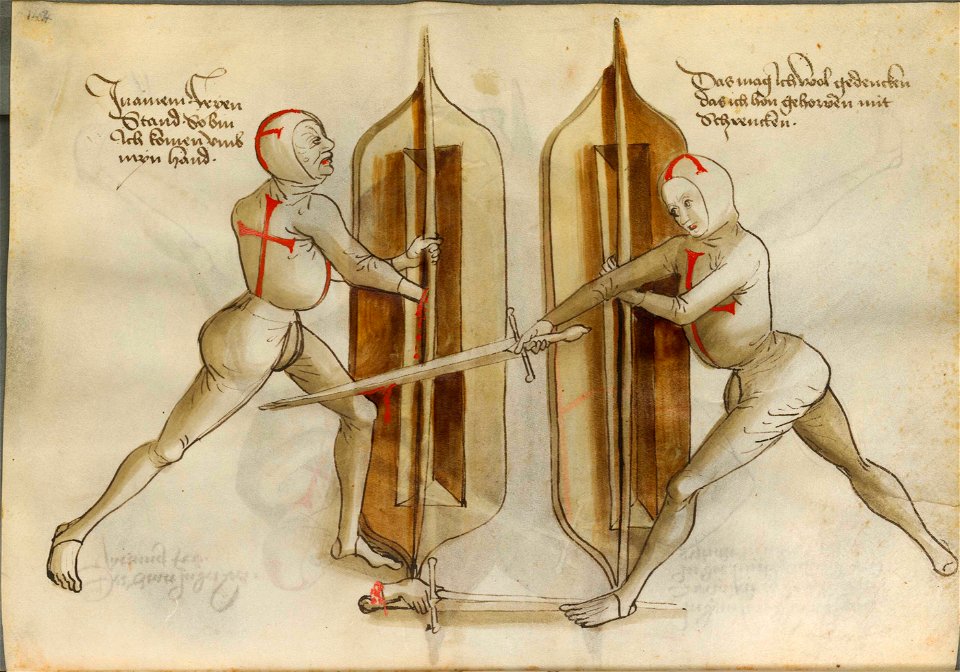 In ainem Leren
Stand So bin
Ich komen vmb
min Hand.
Das mag ich wol gedencken
das ich hon gehowen mit
Schrencken.